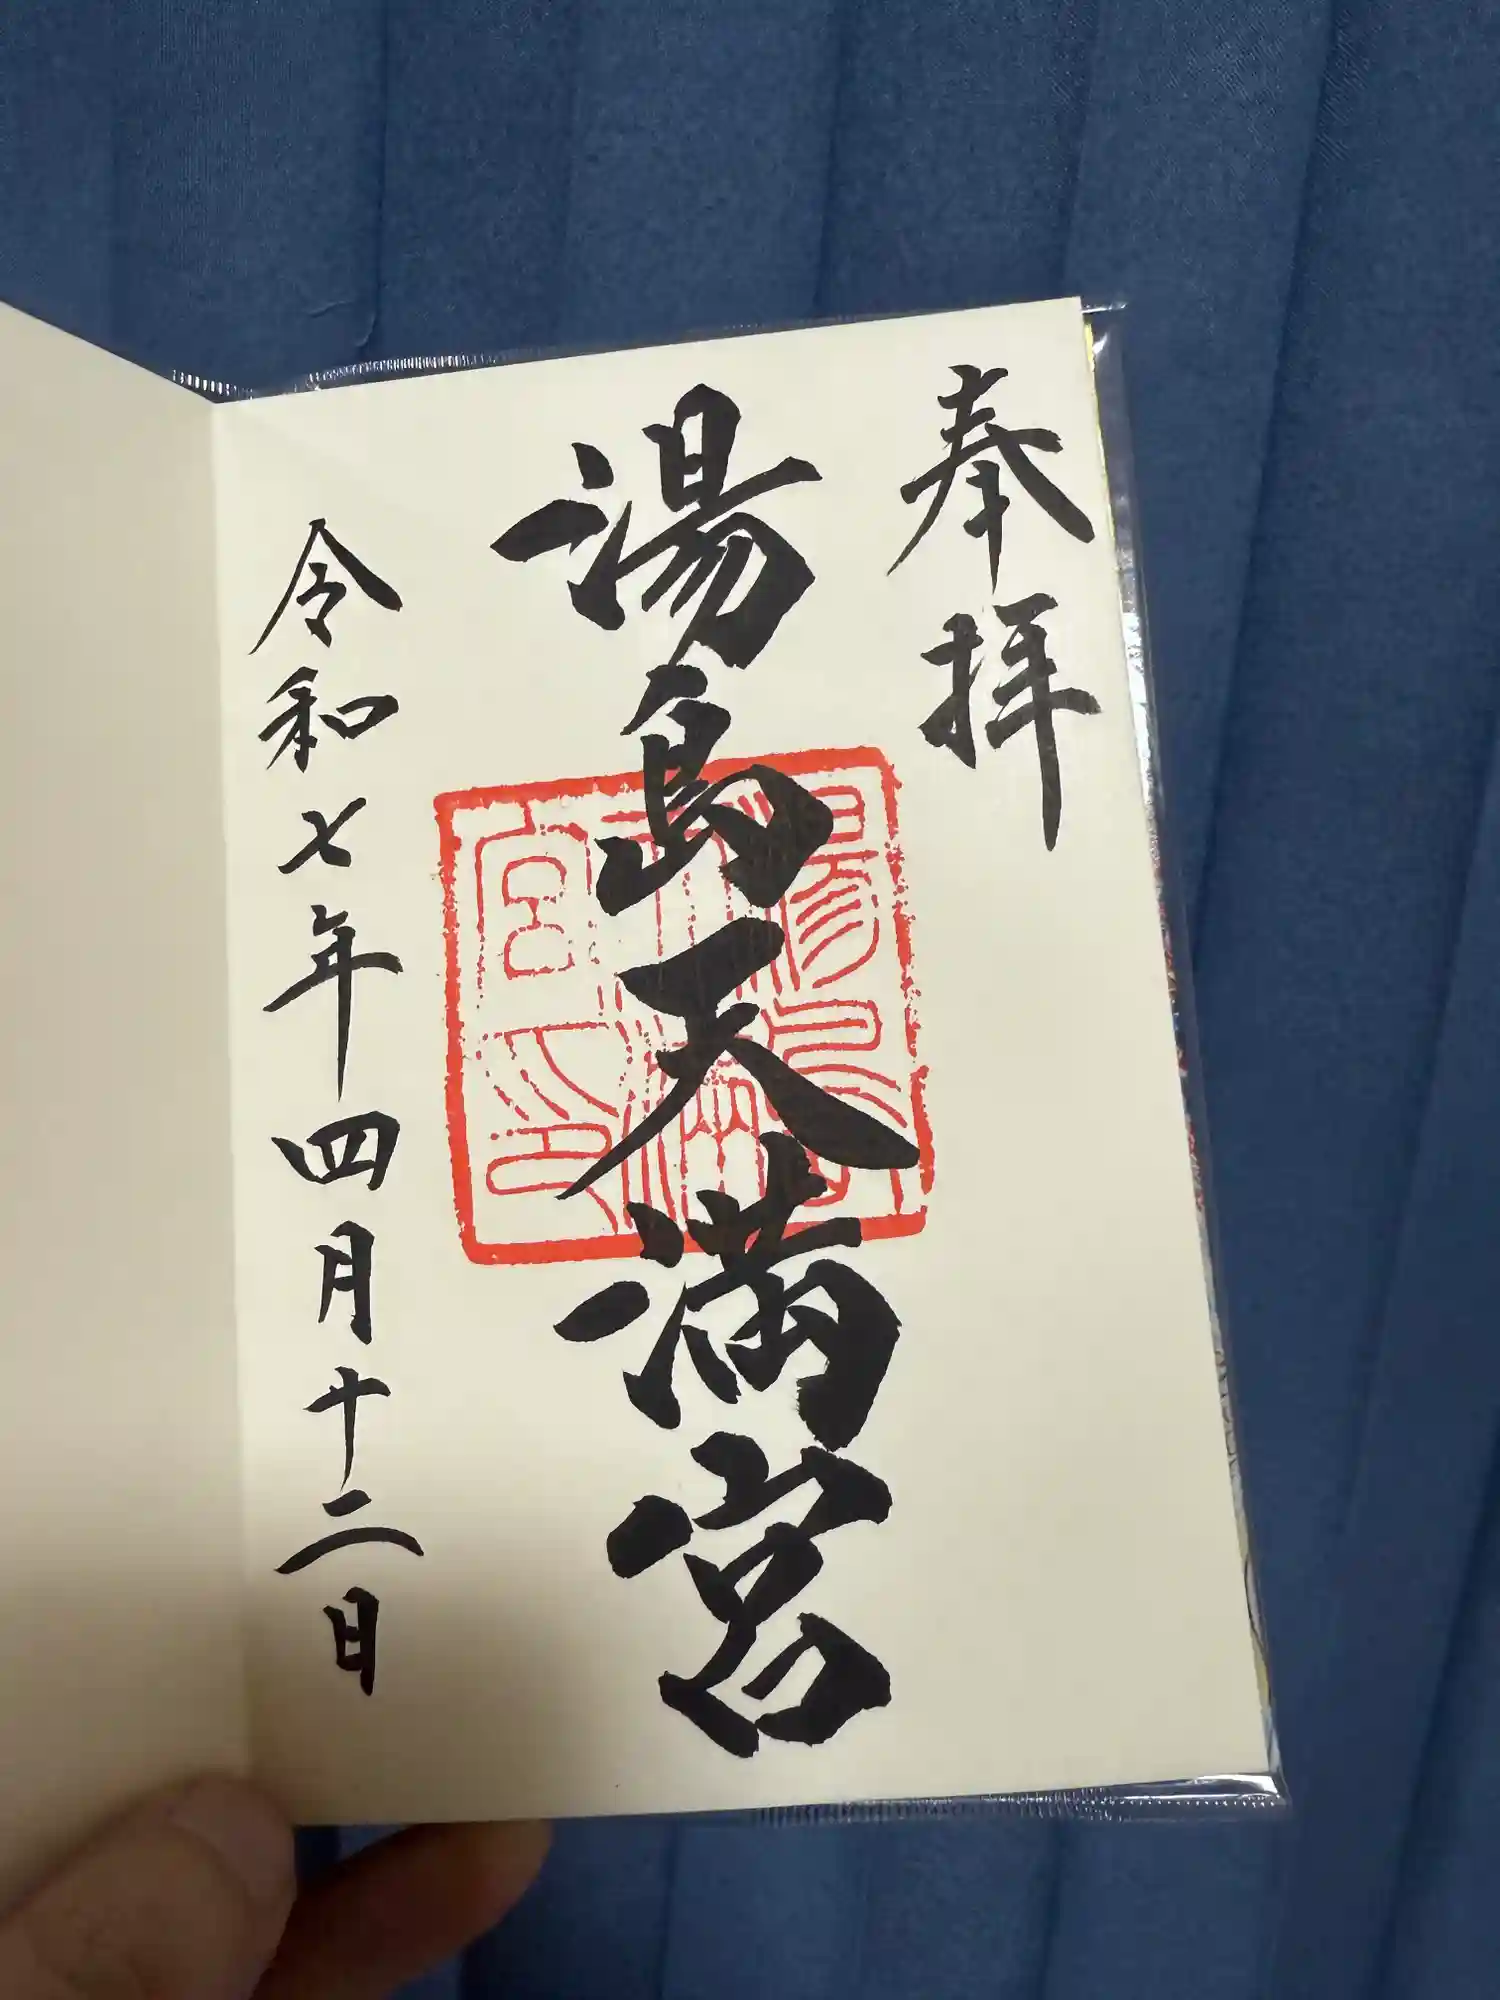 奉拝
湯島天満宮
令和七年四月十二日